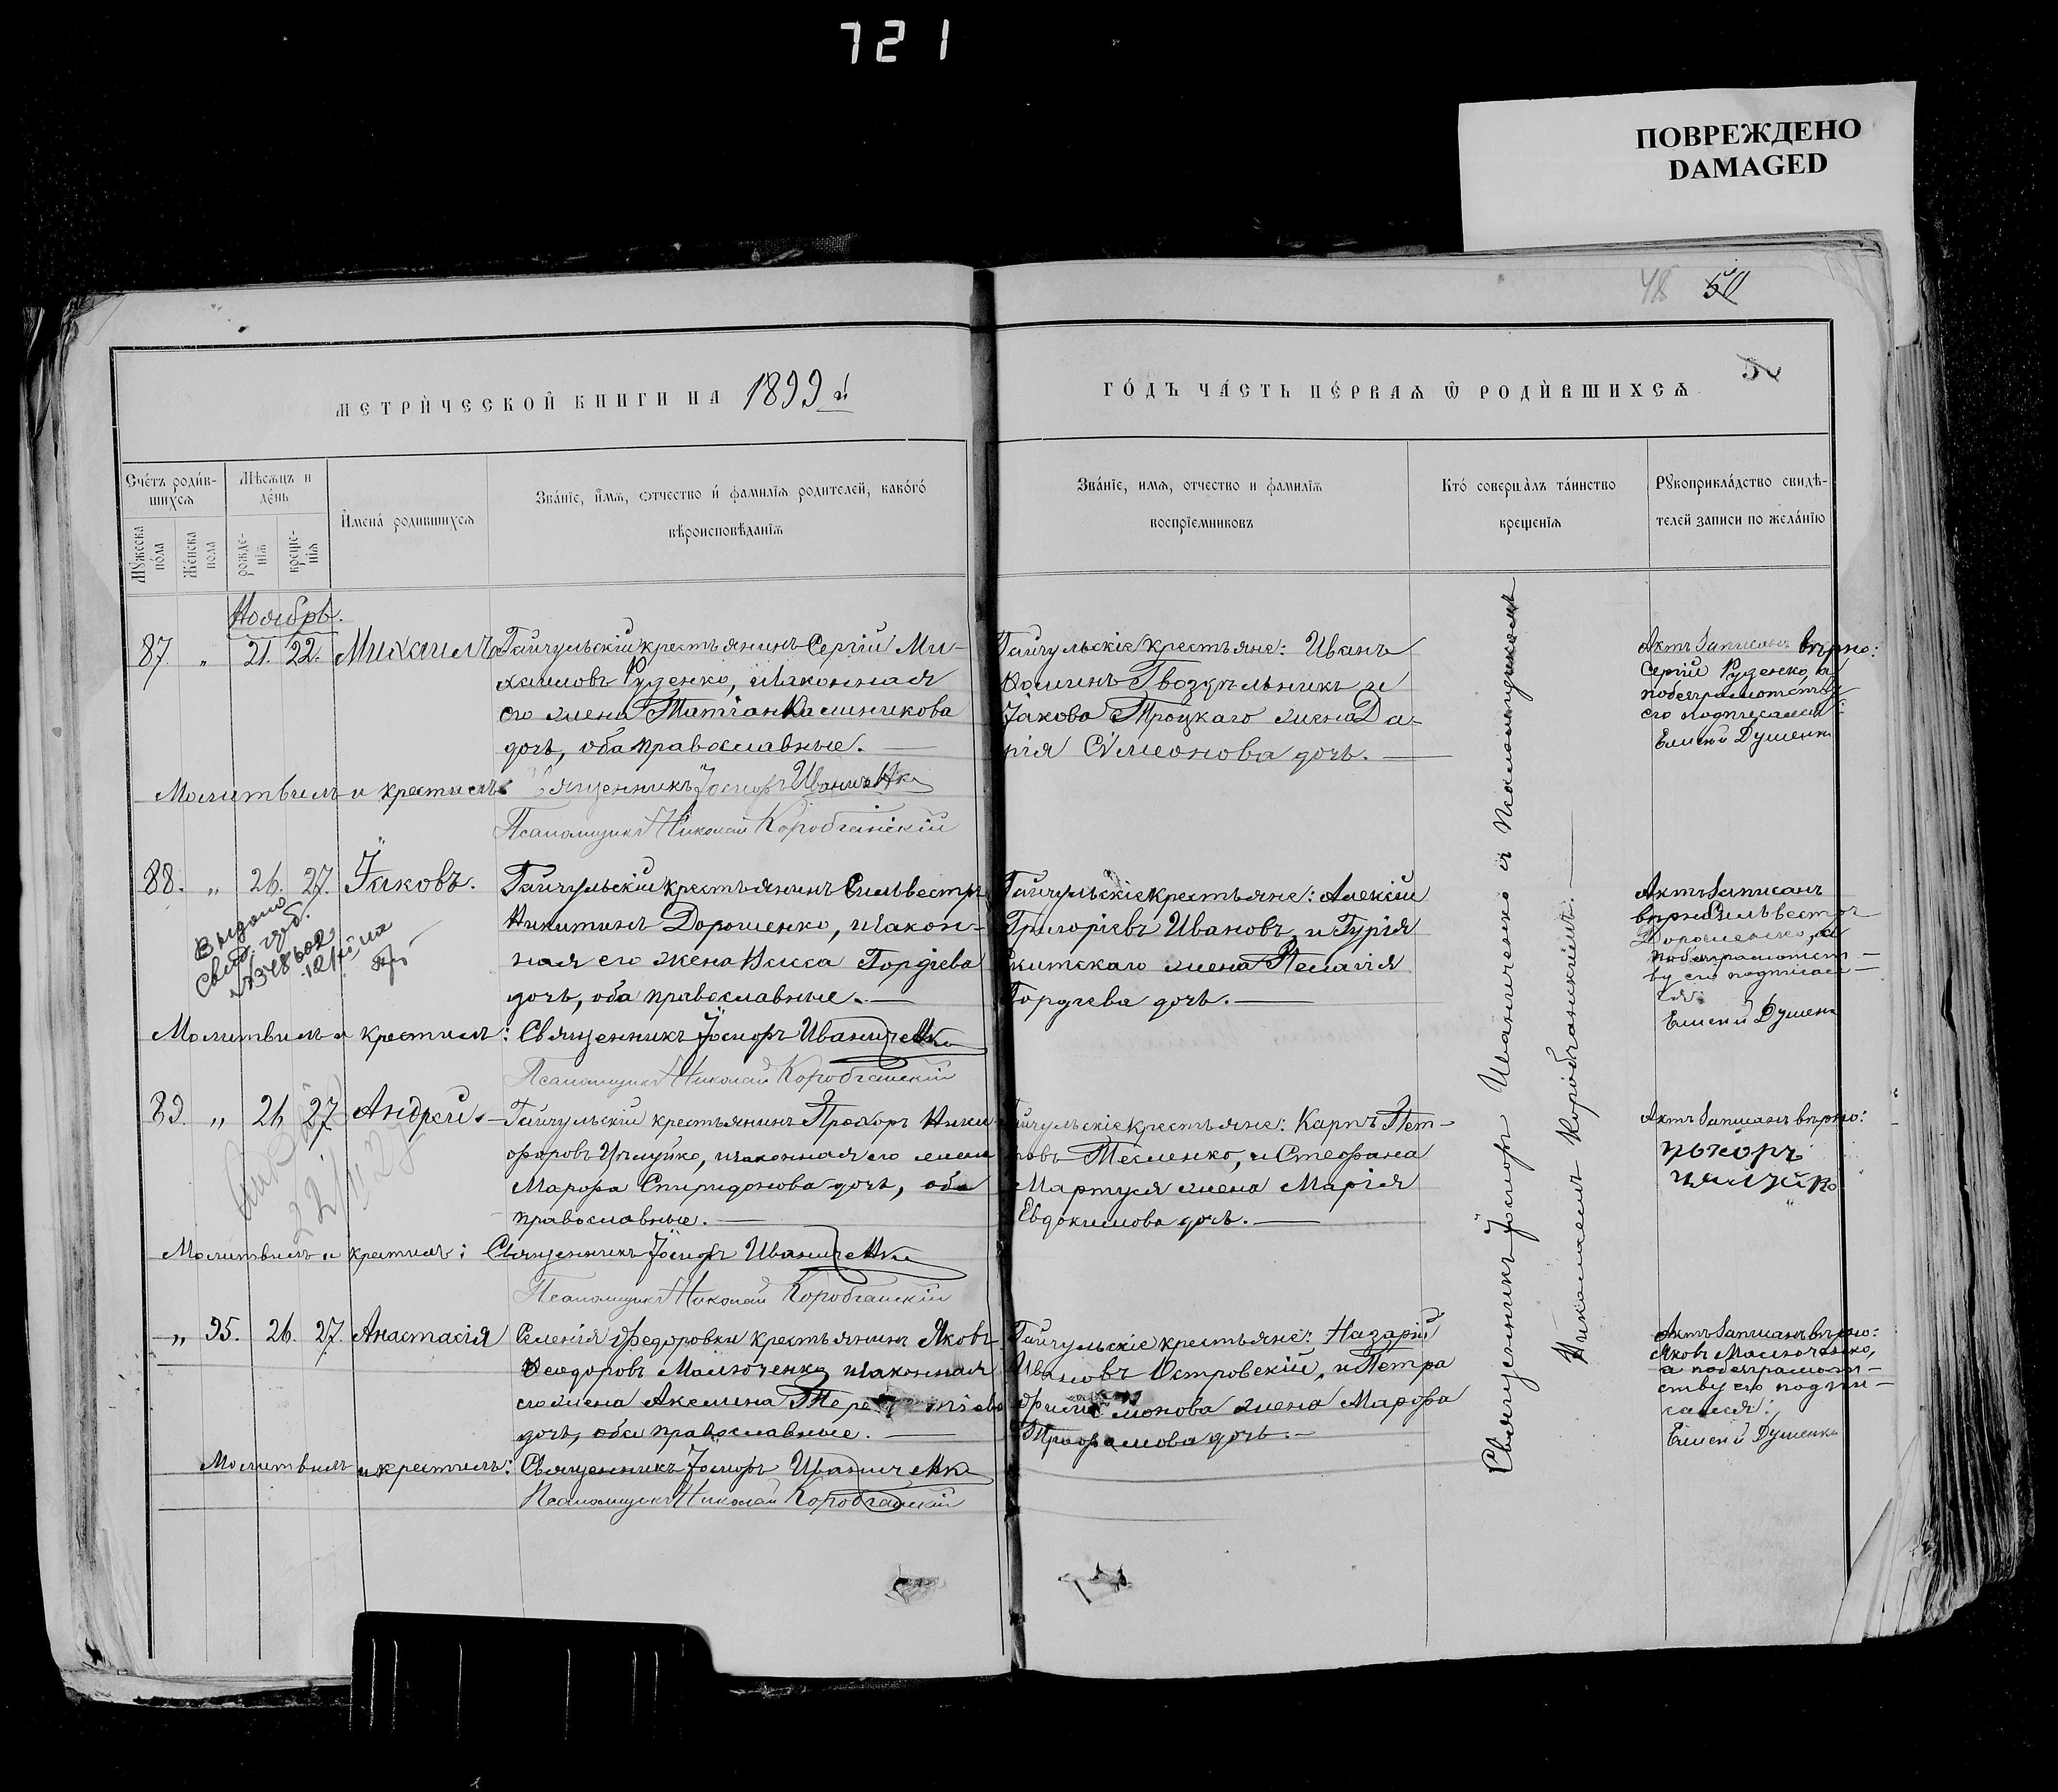 721
ПОВРЕЖДЕНО
DAMAGED
48 50
50
МЕТРИЧЕСКОЙ КНИГИ НА 1899й
ГОДЪ ЧАСТЬ ПЕРВАЯ Ѿ РОДИВШИХСЯ
Счетъ родив-
шихся
Мѣсяцъ и
день
Мужеска
пола
Женска
пола
рожде-
нія
креще-
нія
Имена родившихся
Званіе, имя, отчество и фамилія родителей, какого
вѣроисповѣданія
Званіе, имя, отчество и фамилія
воспріемниковъ
Кто совершалъ таинство
крещенія
Рукоприкладство свидѣ-
телей записи по желанію
Ноябрь.
87. „ 21. 22. Михаилъ
Гайчульскій крестьянинъ Сергій Ми-
хаиловъ Руденко, и законная
его жена Татіана Калинникова
дочь, оба православные.
Гайчульскіе крестьяне: Иванъ
Гвоздѣльникъ и
Іакова Троцкаго жена Да-
рія Сімеонова дочь.
Актъ записанъ вѣрно:
Сергій Руденко, а
по безграмотству
его подписался:
Елисей Душенк
Молитвилъ и крестилъ: Священникъ Іосифъ Иваничевъ
Псаломщикъ Николай Коробчанскій
88. „ 26. 27. Іаковъ.
Гайчульскій крестьянинъ Сильвестръ
Никитинъ Дорошенко, и закон-
ная его жена Васса Гордіева
дочь, оба православные.
Гайчульскіе крестьяне: Алексій
Григоріевъ Ивановъ, и Гурія
Скитскаго жена Пелагія
Гордіева дочь.
Актъ записанъ
вѣрно: Сильвестръ
Дорошенко, а
по безграмотст-
ву его подписал-
ся:
Елисей Душенк
Выдано
свид.
№
Молитвилъ и крестилъ: Священникъ Іосифъ Иваниченко
Псаломщикъ Николай Коробчанскій
89. „ 26 27 Андрей.
Гайчульскій крестьянинъ Прохоръ Ники
форовъ Цѣлуйко, и законная его жена
Марфа Спиридонова дочь, оба
православные.
Гайчульскіе крестьяне: Карпъ Пет-
ровъ Тесленко, и Стефана
Мартуся жена Марія
Евдокимова дочь.
Актъ записанъ вѣрно:
Молитвилъ и крестилъ: Священникъ Іосифъ Иваниченко
Псаломщикъ Николай Коробчанскій
„ 95. 26. 27. Анастасія
Селенія Федоровки крестьянинъ Яковъ
Феодоровъ Малюченко, и законная
его жена Акелина
дочь, оба православные.
Гайчульскіе крестьяне: Назарій
Ивановъ Островскій, и Петра
Филимонова жена Марфа
дочь.
Актъ записанъ вѣрно:
Яковъ Малюченко,
а по безграмот-
ству его подпи-
сался:
Елисей Душенко
Молитвилъ и крестилъ: Священникъ Іосифъ Иваниченко
Псаломщикъ Николай Коробчанскій
Священникъ Іосифъ Иваниченко съ Псаломщикомъ
Николаемъ Коробчанскимъ.